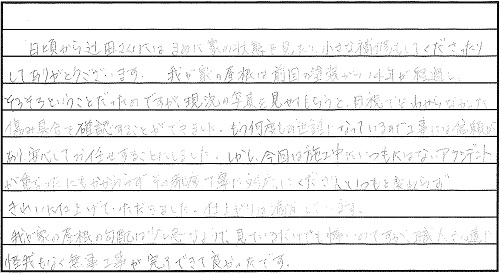 日頃から辻田さんにはまめに家の状態を見たり、小さな補修をしてくださったり
してありがとうございます。我が家の屋根は前回の塗装から14年が経過し、
そろそろということだったのですが、現況の写真を見せてもらうと、目視ではわからなかった
傷み具合を確認することができました。もう何度もお世話になっているので工事には信頼が
あり安心してお任せすることにしました。しかし、今回は施工中にいつもにはないアクシデント
が重なったにもかかわらずその都度丁寧に対応してくださり、いつもと変わらず
きれいに仕上げていただきました。仕上がりには満足しています。
我が家の屋根の勾配は急なので、見ているだけでも怖いのですが、職人さん達に
怪我もなく無事工事が完了できて良かったです。